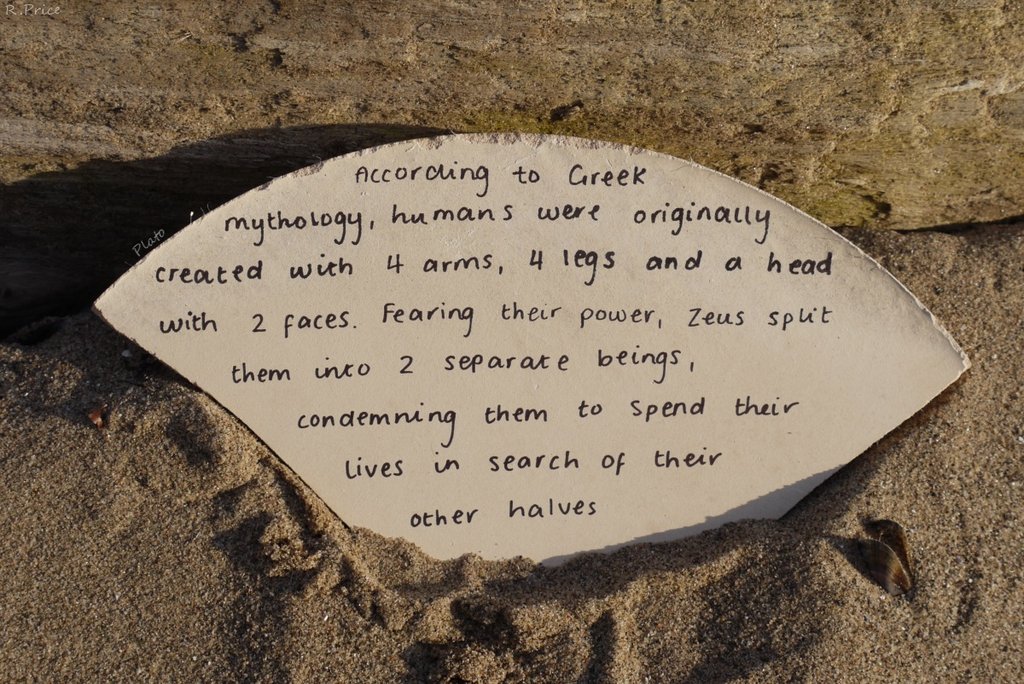 R.Price
According to Greek
mythology, humans were originally
Plato
created with 4 arms, 4 legs and a head
with 2 faces. Fearing their power, Zeus split
them into 2 separate beings,
condemning them to spend their
lives in search of their
other halves